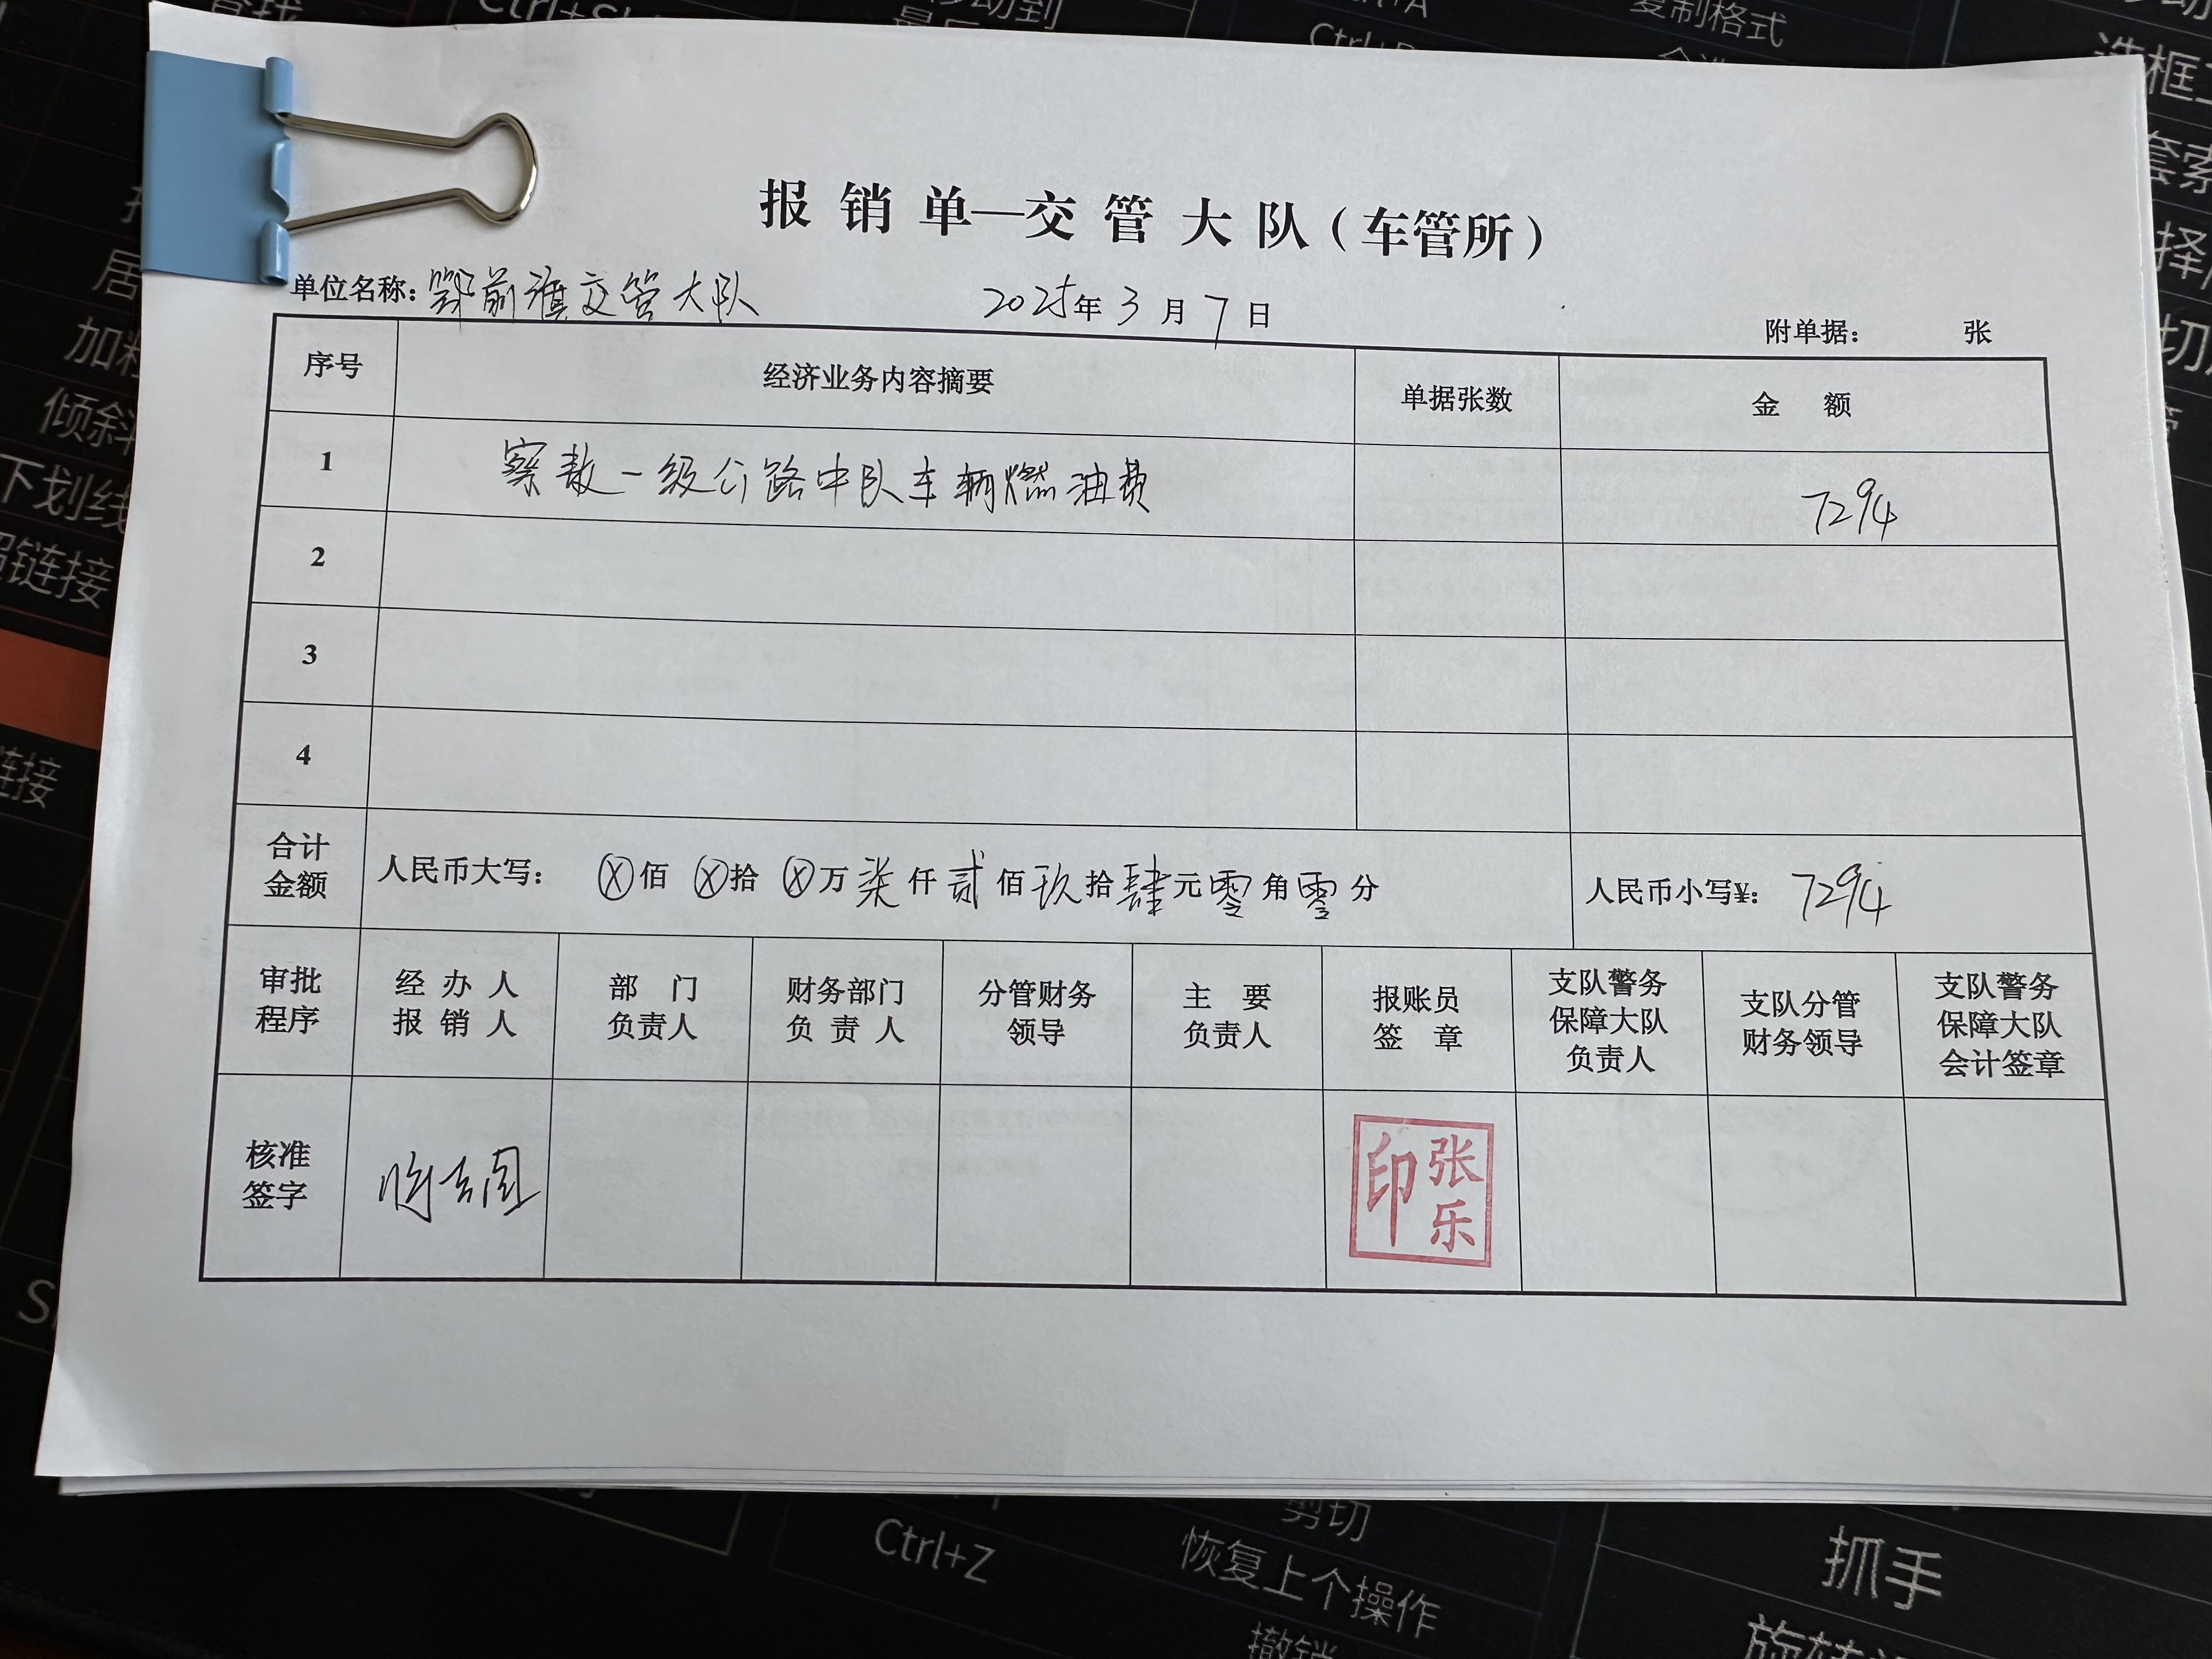 报销单—交管大队（车管所）
单位名称：鄂前旗交管大队 2025年3月7日 附单据： 张
序号 经济业务内容摘要 单据张数 金额
1 察敖一级公路中队车辆燃油费 7294
2
3
4
合计金额 人民币大写：ⓧ佰ⓧ拾ⓧ万柒仟贰佰玖拾肆元零角零分 人民币小写¥：7294
审批程序 经办人报销人 部门负责人 财务部门负责人 分管财务领导 主要负责人 报账员签章 支队警务保障大队负责人 支队分管财务领导 支队警务保障大队会计签章
核准签字 张乐印
移动到
Ctrl+A
复制格式
选框工
套索
择
切
居
加粗
倾斜
下划线
超链接
链接
剪切
Ctrl+Z
恢复上个操作
撤销
抓手
旋转